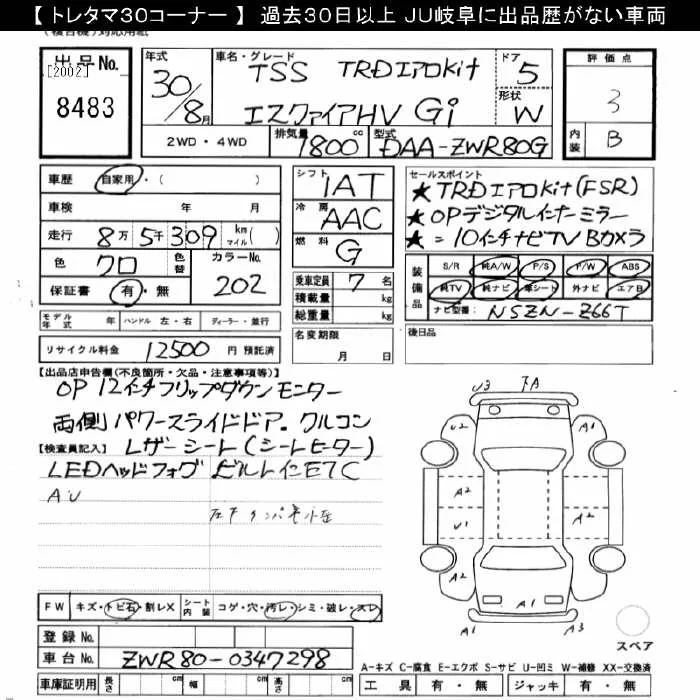 【 トレタマ30コーナー 】 過去30日以上 JU岐阜に出品歴がない車両
(複合機)対応用紙
出品No.
[2002]
8483
年式
30/8月
車名・グレード
TSS TRDエアロKit
エスクァイアHV Gi
ドア
5
形状
W
評価点
3
内装
B
2WD・4WD
排気量
1800cc
型式
DAA-ZWR80G
車歴 自家用・( )
車検 年 月
走行 8万5千309 km マイル( )
色 クロ 色替 カラーNo. 202
保証書 有・無
シフト
IAT
冷房
AAC
燃料
G
乗車定員 7 名
積載量 kg
総重量 kg
名変期限
月 日
セールスポイント
★TRDエアロKit(FSR)
★OPデジタルインナーミラー
★=10インチナビTV Bカメラ
装備品
S/R 純A/W P/S P/W ABS
純TV 純ナビ 革シート 外ナビ エアB
ナビ型番: NSZN-Z66T
モデル年式 年 ハンドル 左・右 ディーラー・並行
後日品
リサイクル料金 12500 円 預託済
【出品店申告欄(不良箇所・欠品・注意事項等)】
OP 12インチフリップダウンモニター
両側パワースライドドア。クルコン
【検査員記入】 レザーシート(シートヒーター)
LEDヘッドフォグ ビルトインETC
AU
U3 FA
U2 A1
A2
A2
U1
A2
A2
A1
A1 A3
スペア
FW キズ・トビ石・割レX シート内装 コゲ・穴・汚レ・シミ・破レ・スレ
登録No.
車台No. ZWR80-0347298
車庫証明用 長さ cm 幅 cm 高さ cm
A-キズ C-腐食 E-エクボ S-サビ U-凹ミ W-補修 XX-交換済
工具 有・無 ジャッキ 有・無